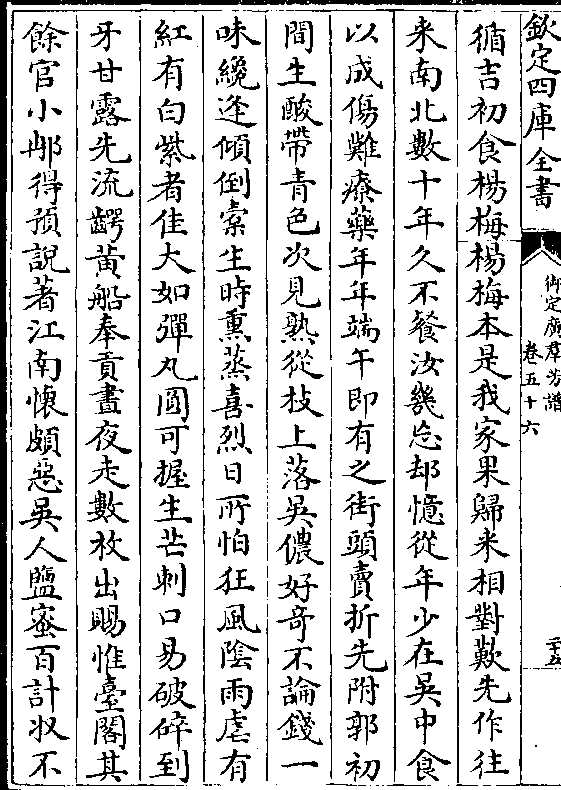 欽定四庫全書
御定廣羣芳譜
卷五十六
二十五
循吉初食楊梅楊梅本是我家果歸来相對歎先作往
来南北數十年久不餐汝幾忘却憶從年少在吳中食
以成傷難療藥年年端午即有之街頭賣折先附郭初
間生酸帶青色次見熟從枝上落吳儂好奇不論錢一
味纔逢傾倒索生時熏蒸喜烈日所怕狂風陰雨虐有
紅有白紫者佳大如彈丸圓可握生芒刺口易破碎到
牙甘露先流齶黄船奉貢晝夜走數枚出賜惟臺閣其
餘官小那得預說著江南懷頗惡吳人鹽蜜百計收不